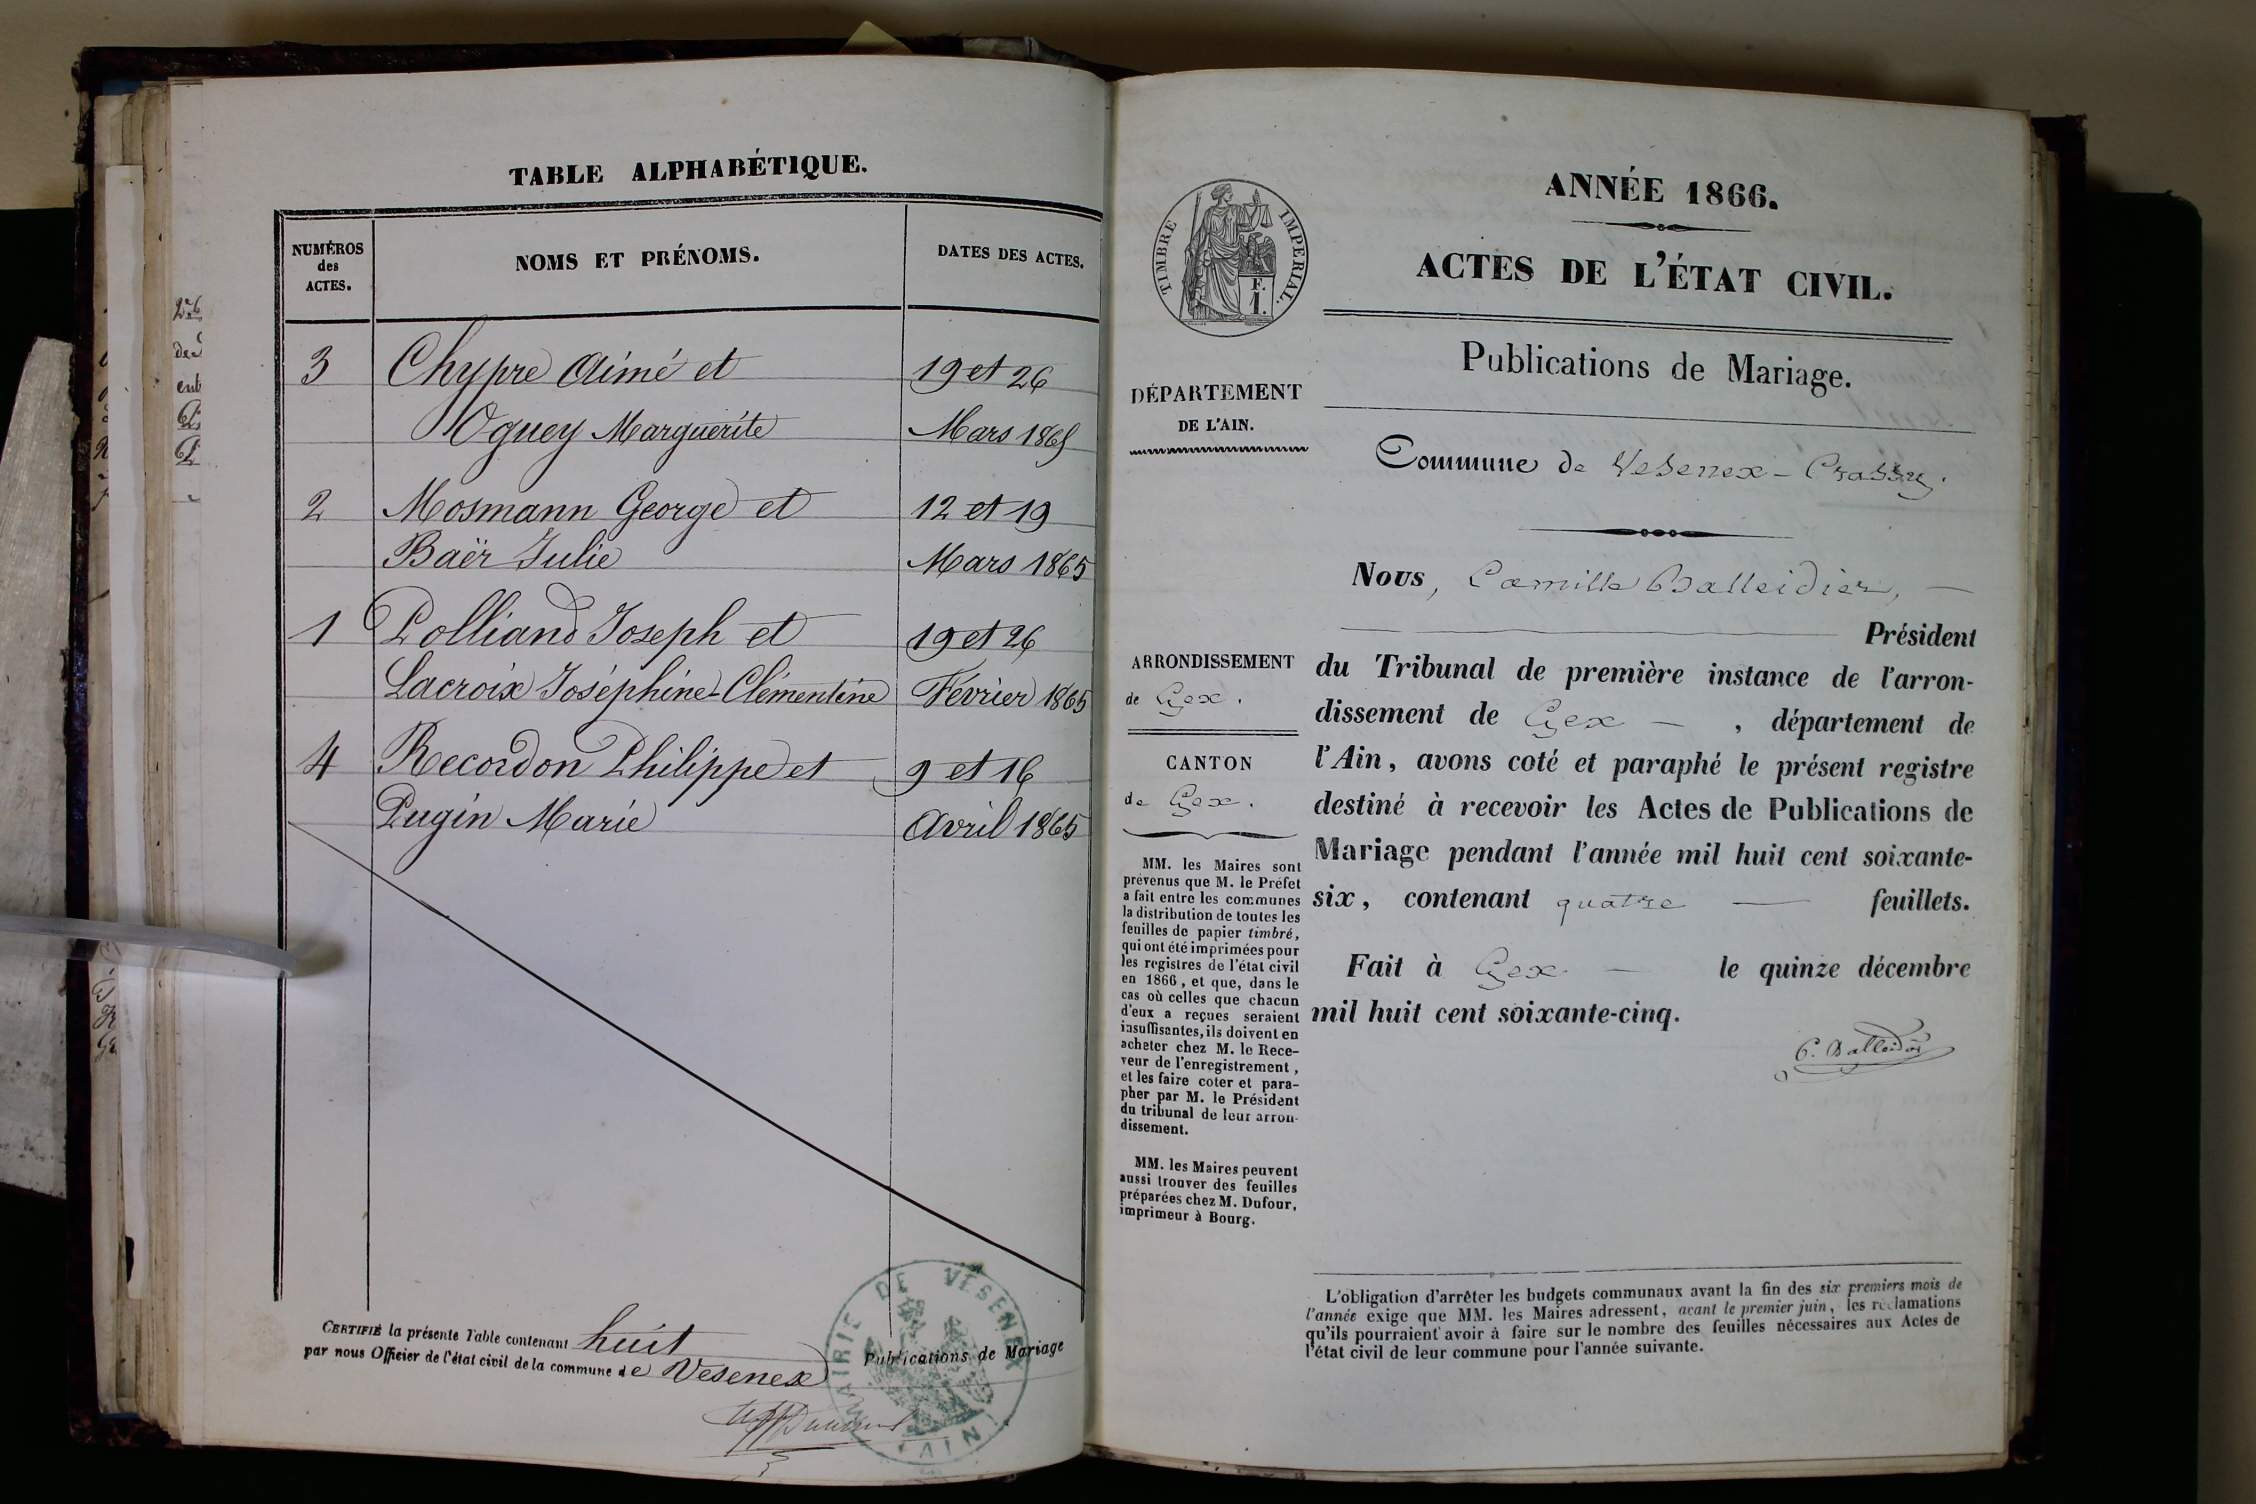 TABLE ALPHABÉTIQUE.
NUMÉROS
des
ACTES.
NOMS ET PRÉNOMS.
DATES DES ACTES.
3 Chypre Aimé et 19 et 26
Oguey Marguerite Mars 1865
2 Mosmann George et 12 et 19
Baër Julie Mars 1865
1 Polliand Joseph et 19 et 26
Lacroix Joséphine-Clémentine Février 1865
4 Recordon Philippe et 9 et 16
Pugin Marie Avril 1865
CERTIFIÉ la présente Table contenant huit Publications de Mariage
par nous Officier de l'état civil de la commune de Vesenex
MAIRIE DE VESENEX
(AIN)
ANNÉE 1866.
ACTES DE L'ÉTAT CIVIL.
TIMBRE IMPÉRIAL.
F.
1.
Publications de Mariage.
DÉPARTEMENT
DE L'AIN.
Commune de Vesenex-Crassy.
ARRONDISSEMENT
de Gex.
CANTON
de Gex.
MM. les Maires sont
prévenus que M. le Préfet
a fait entre les communes
la distribution de toutes les
feuilles de papier timbré,
qui ont été imprimées pour
les registres de l'état civil
en 1866, et que, dans le
cas où celles que chacun
d'eux a reçues seraient
insuffisantes, ils doivent en
acheter chez M. le Rece-
veur de l'enregistrement,
et les faire coter et para-
pher par M. le Président
du tribunal de leur arron-
dissement.
MM. les Maires peuvent
aussi trouver des feuilles
préparées chez M. Dufour,
imprimeur à Bourg.
Nous, Camille Balleidier,
Président
du Tribunal de première instance de l'arron-
dissement de Gex, département de
l'Ain, avons coté et paraphé le présent registre
destiné à recevoir les Actes de Publications de
Mariage pendant l'année mil huit cent soixante-
six, contenant quatre feuillets.
Fait à Gex le quinze décembre
mil huit cent soixante-cinq.
C. Balleidier
L'obligation d'arrêter les budgets communaux avant la fin des six premiers mois de
l'année exige que MM. les Maires adressent, avant le premier juin, les réclamations
qu'ils pourraient avoir à faire sur le nombre des feuilles nécessaires aux Actes de
l'état civil de leur commune pour l'année suivante.